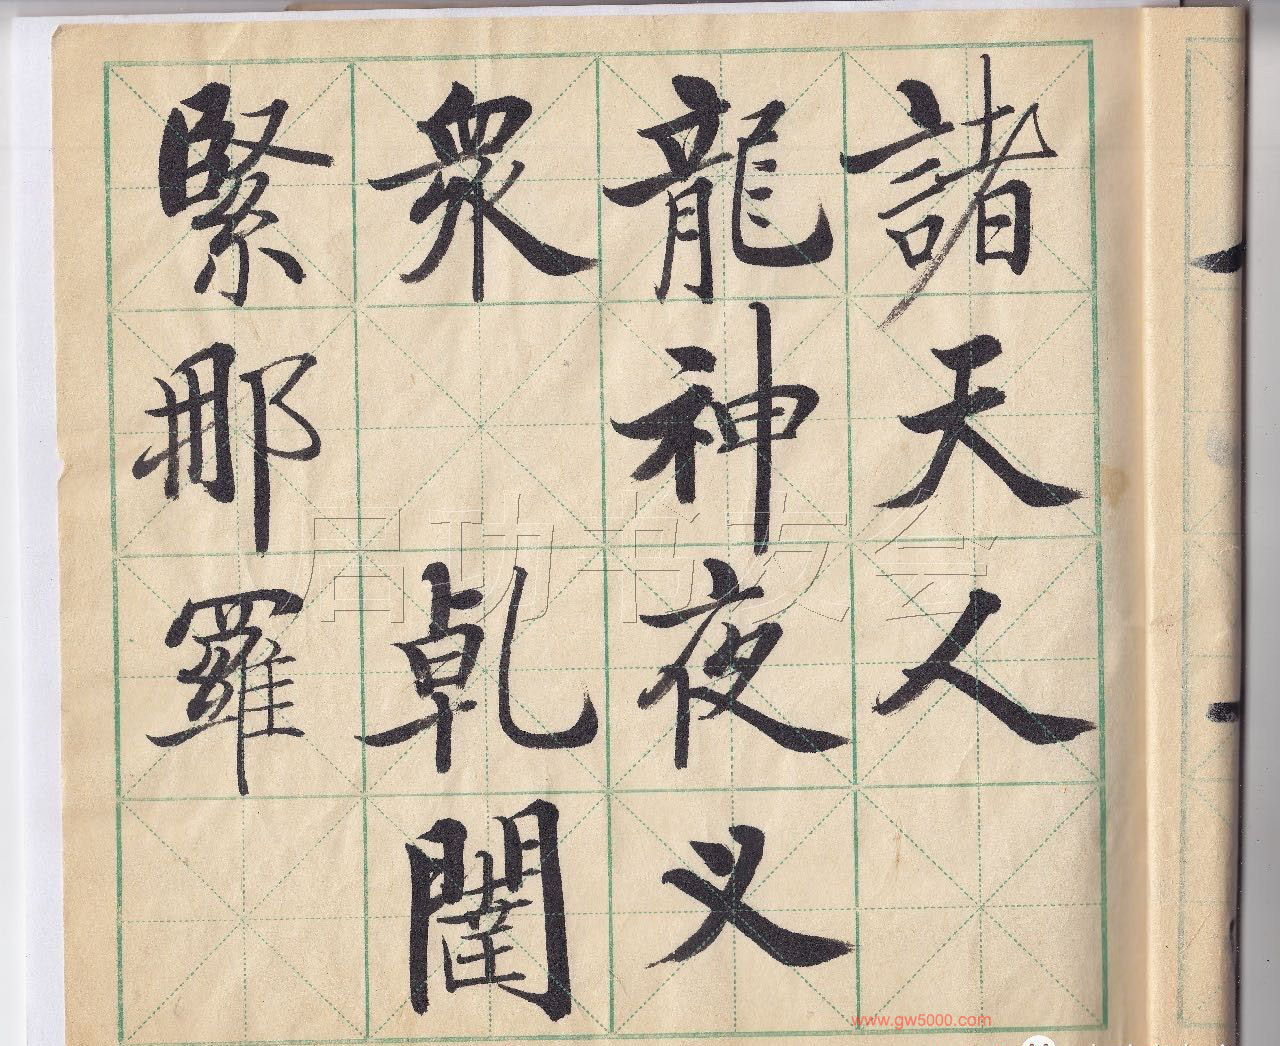 諸天人
龍神夜义
衆 乾闥
緊那羅
启功书友会
www.gw5000.com